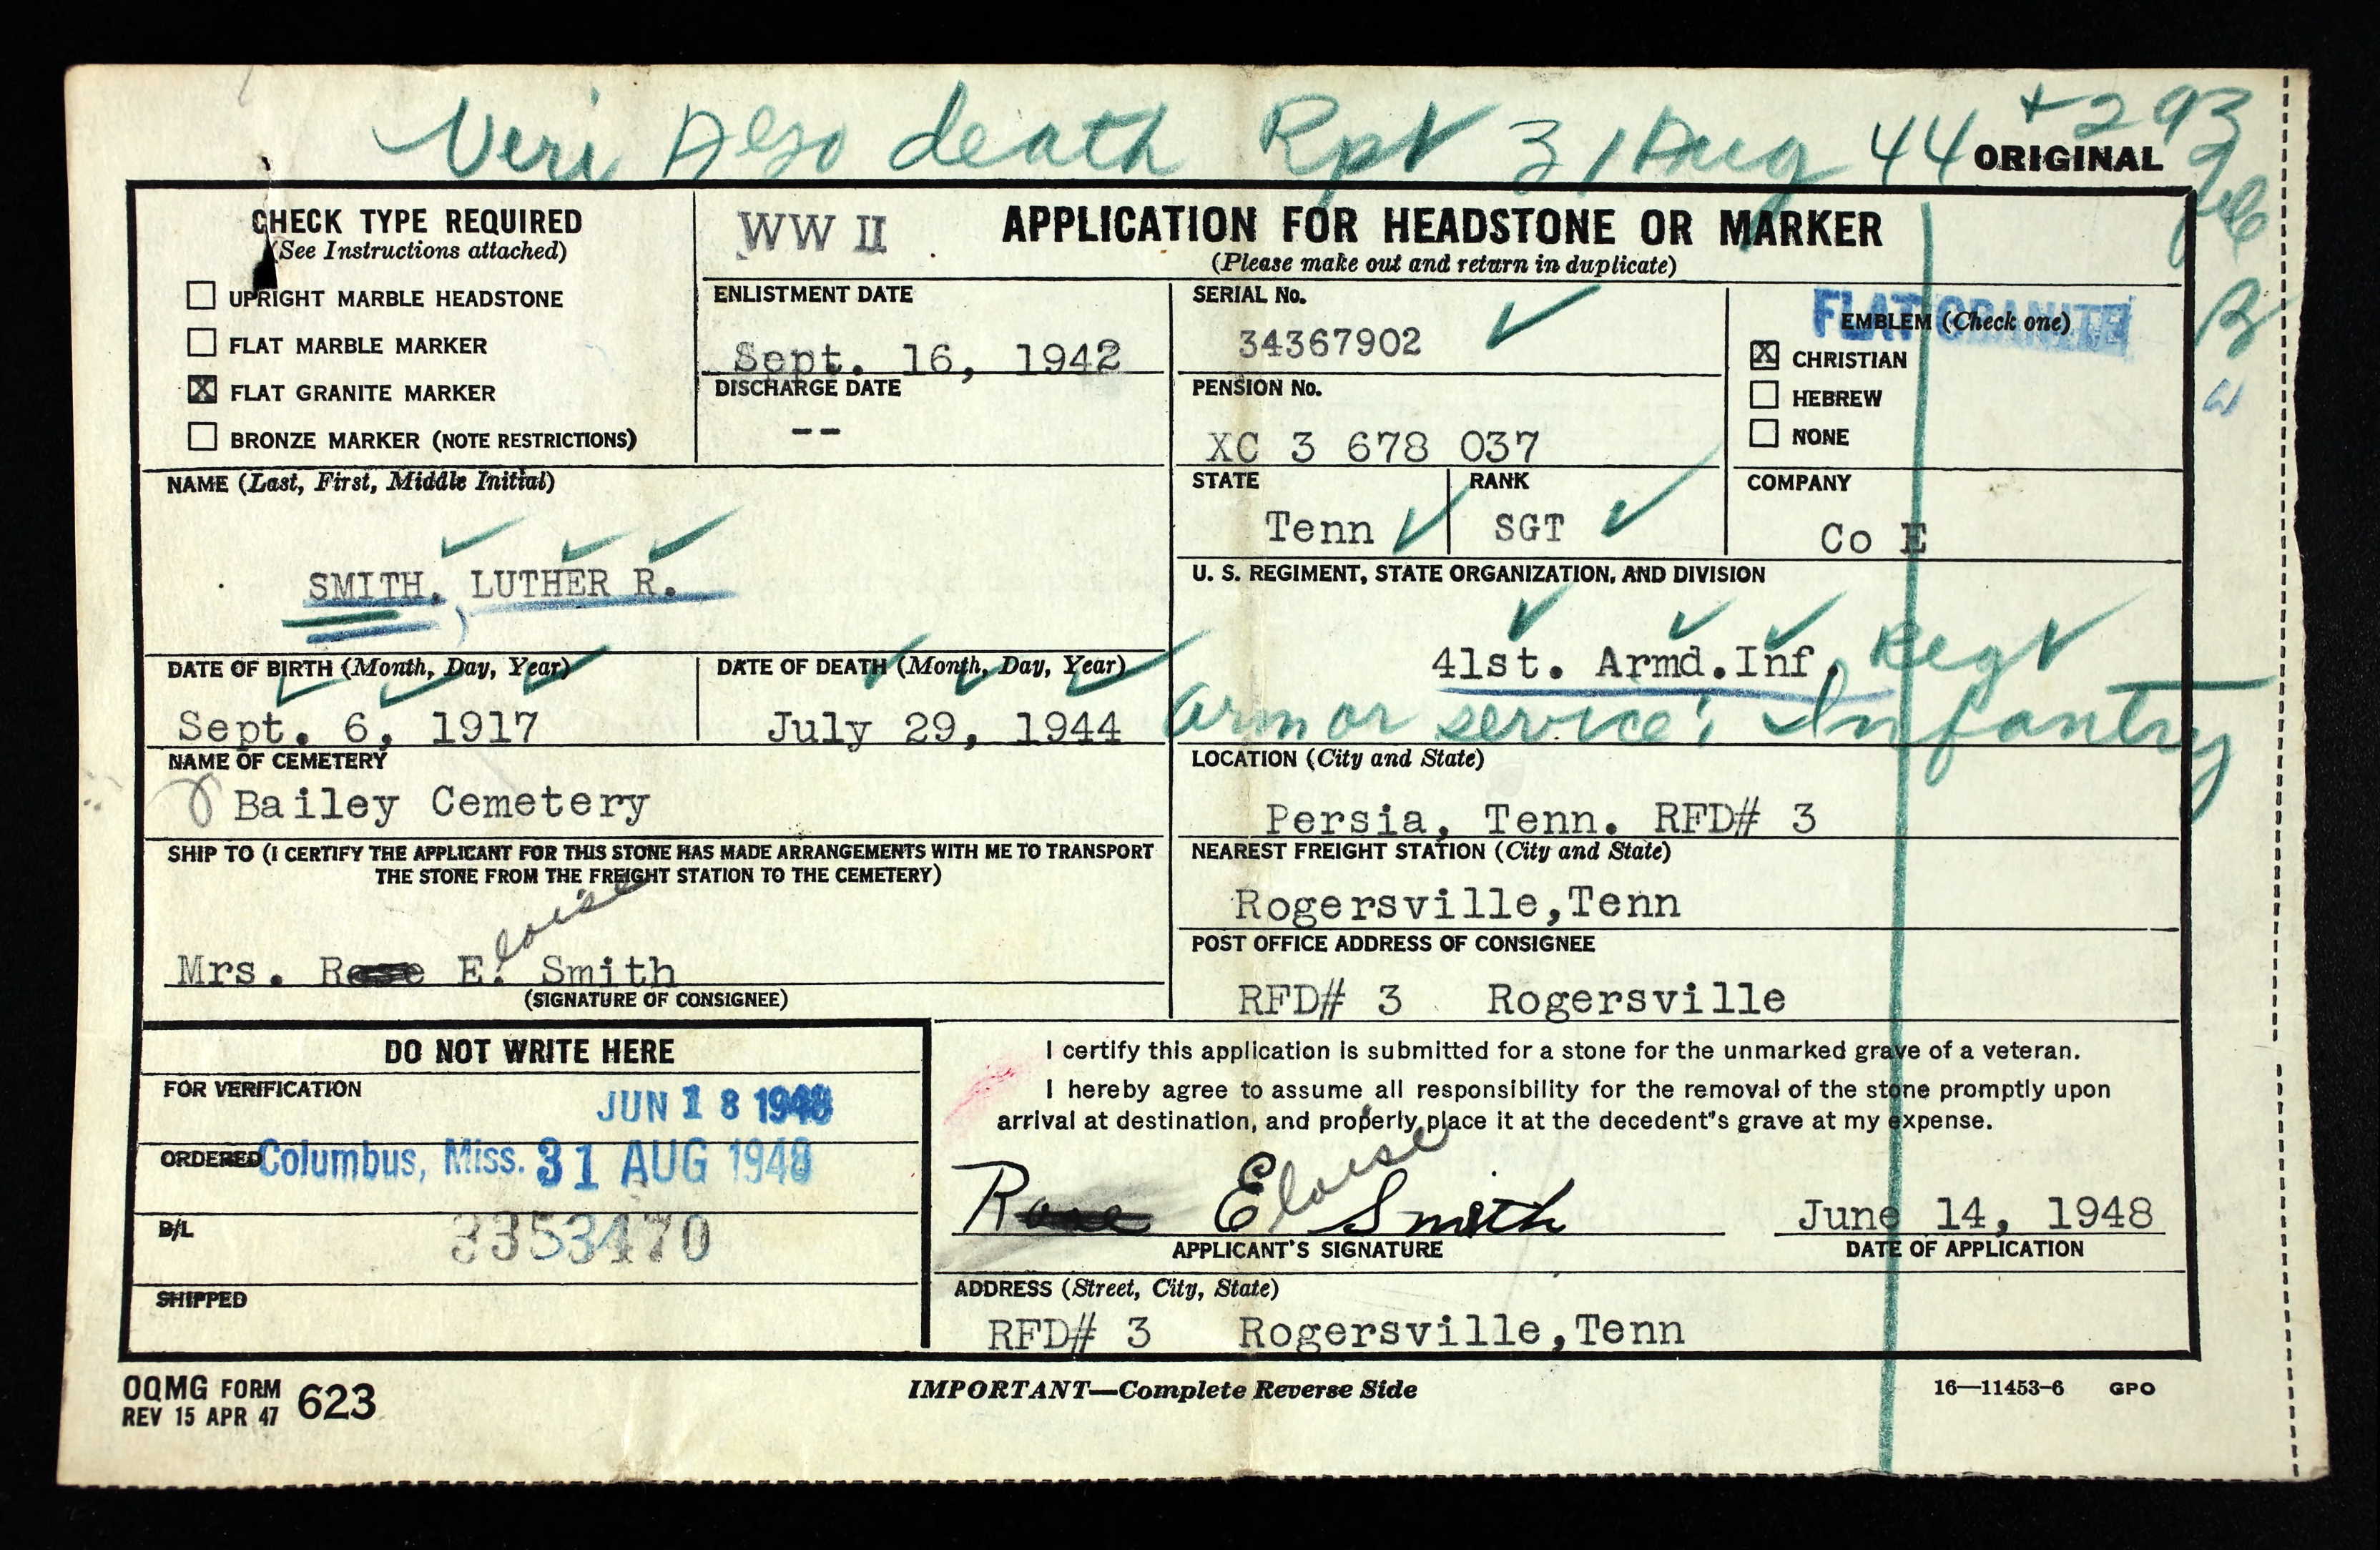 Veri Ago death Rpt 31 Aug 44 + 293
ORIGINAL
CHECK TYPE REQUIRED
(See Instructions attached)
☐ UPRIGHT MARBLE HEADSTONE
☐ FLAT MARBLE MARKER
☒ FLAT GRANITE MARKER
☐ BRONZE MARKER (NOTE RESTRICTIONS)
WW II
APPLICATION FOR HEADSTONE OR MARKER
(Please make out and return in duplicate)
ENLISTMENT DATE
Sept. 16, 1942
DISCHARGE DATE
--
SERIAL No.
34367902
PENSION No.
XC 3 678 037
FLAT GRANITE
EMBLEM (Check one)
☒ CHRISTIAN
☐ HEBREW
☐ NONE
NAME (Last, First, Middle Initial)
SMITH, LUTHER R.
STATE
Tenn
RANK
SGT
COMPANY
Co E
U. S. REGIMENT, STATE ORGANIZATION, AND DIVISION
41st. Armd.Inf. Regt
Armor service: Infantry
DATE OF BIRTH (Month, Day, Year)
Sept. 6, 1917
DATE OF DEATH (Month, Day, Year)
July 29, 1944
NAME OF CEMETERY
Bailey Cemetery
LOCATION (City and State)
Persia, Tenn. RFD# 3
SHIP TO (I CERTIFY THE APPLICANT FOR THIS STONE HAS MADE ARRANGEMENTS WITH ME TO TRANSPORT
THE STONE FROM THE FREIGHT STATION TO THE CEMETERY)
Mrs. Rose E. loise Smith
(SIGNATURE OF CONSIGNEE)
NEAREST FREIGHT STATION (City and State)
Rogersville,Tenn
POST OFFICE ADDRESS OF CONSIGNEE
RFD# 3 Rogersville
DO NOT WRITE HERE
FOR VERIFICATION
JUN 18 1948
ORDERED Columbus, Miss. 31 AUG 1948
B/L 3353470
SHIPPED
I certify this application is submitted for a stone for the unmarked grave of a veteran.
I hereby agree to assume all responsibility for the removal of the stone promptly upon
arrival at destination, and properly place it at the decedent"s grave at my expense.
Rose Eloise Smith
APPLICANT'S SIGNATURE
June 14, 1948
DATE OF APPLICATION
ADDRESS (Street, City, State)
RFD# 3 Rogersville,Tenn
OQMG FORM 623
REV 15 APR 47
IMPORTANT—Complete Reverse Side
16—11453-6 GPO